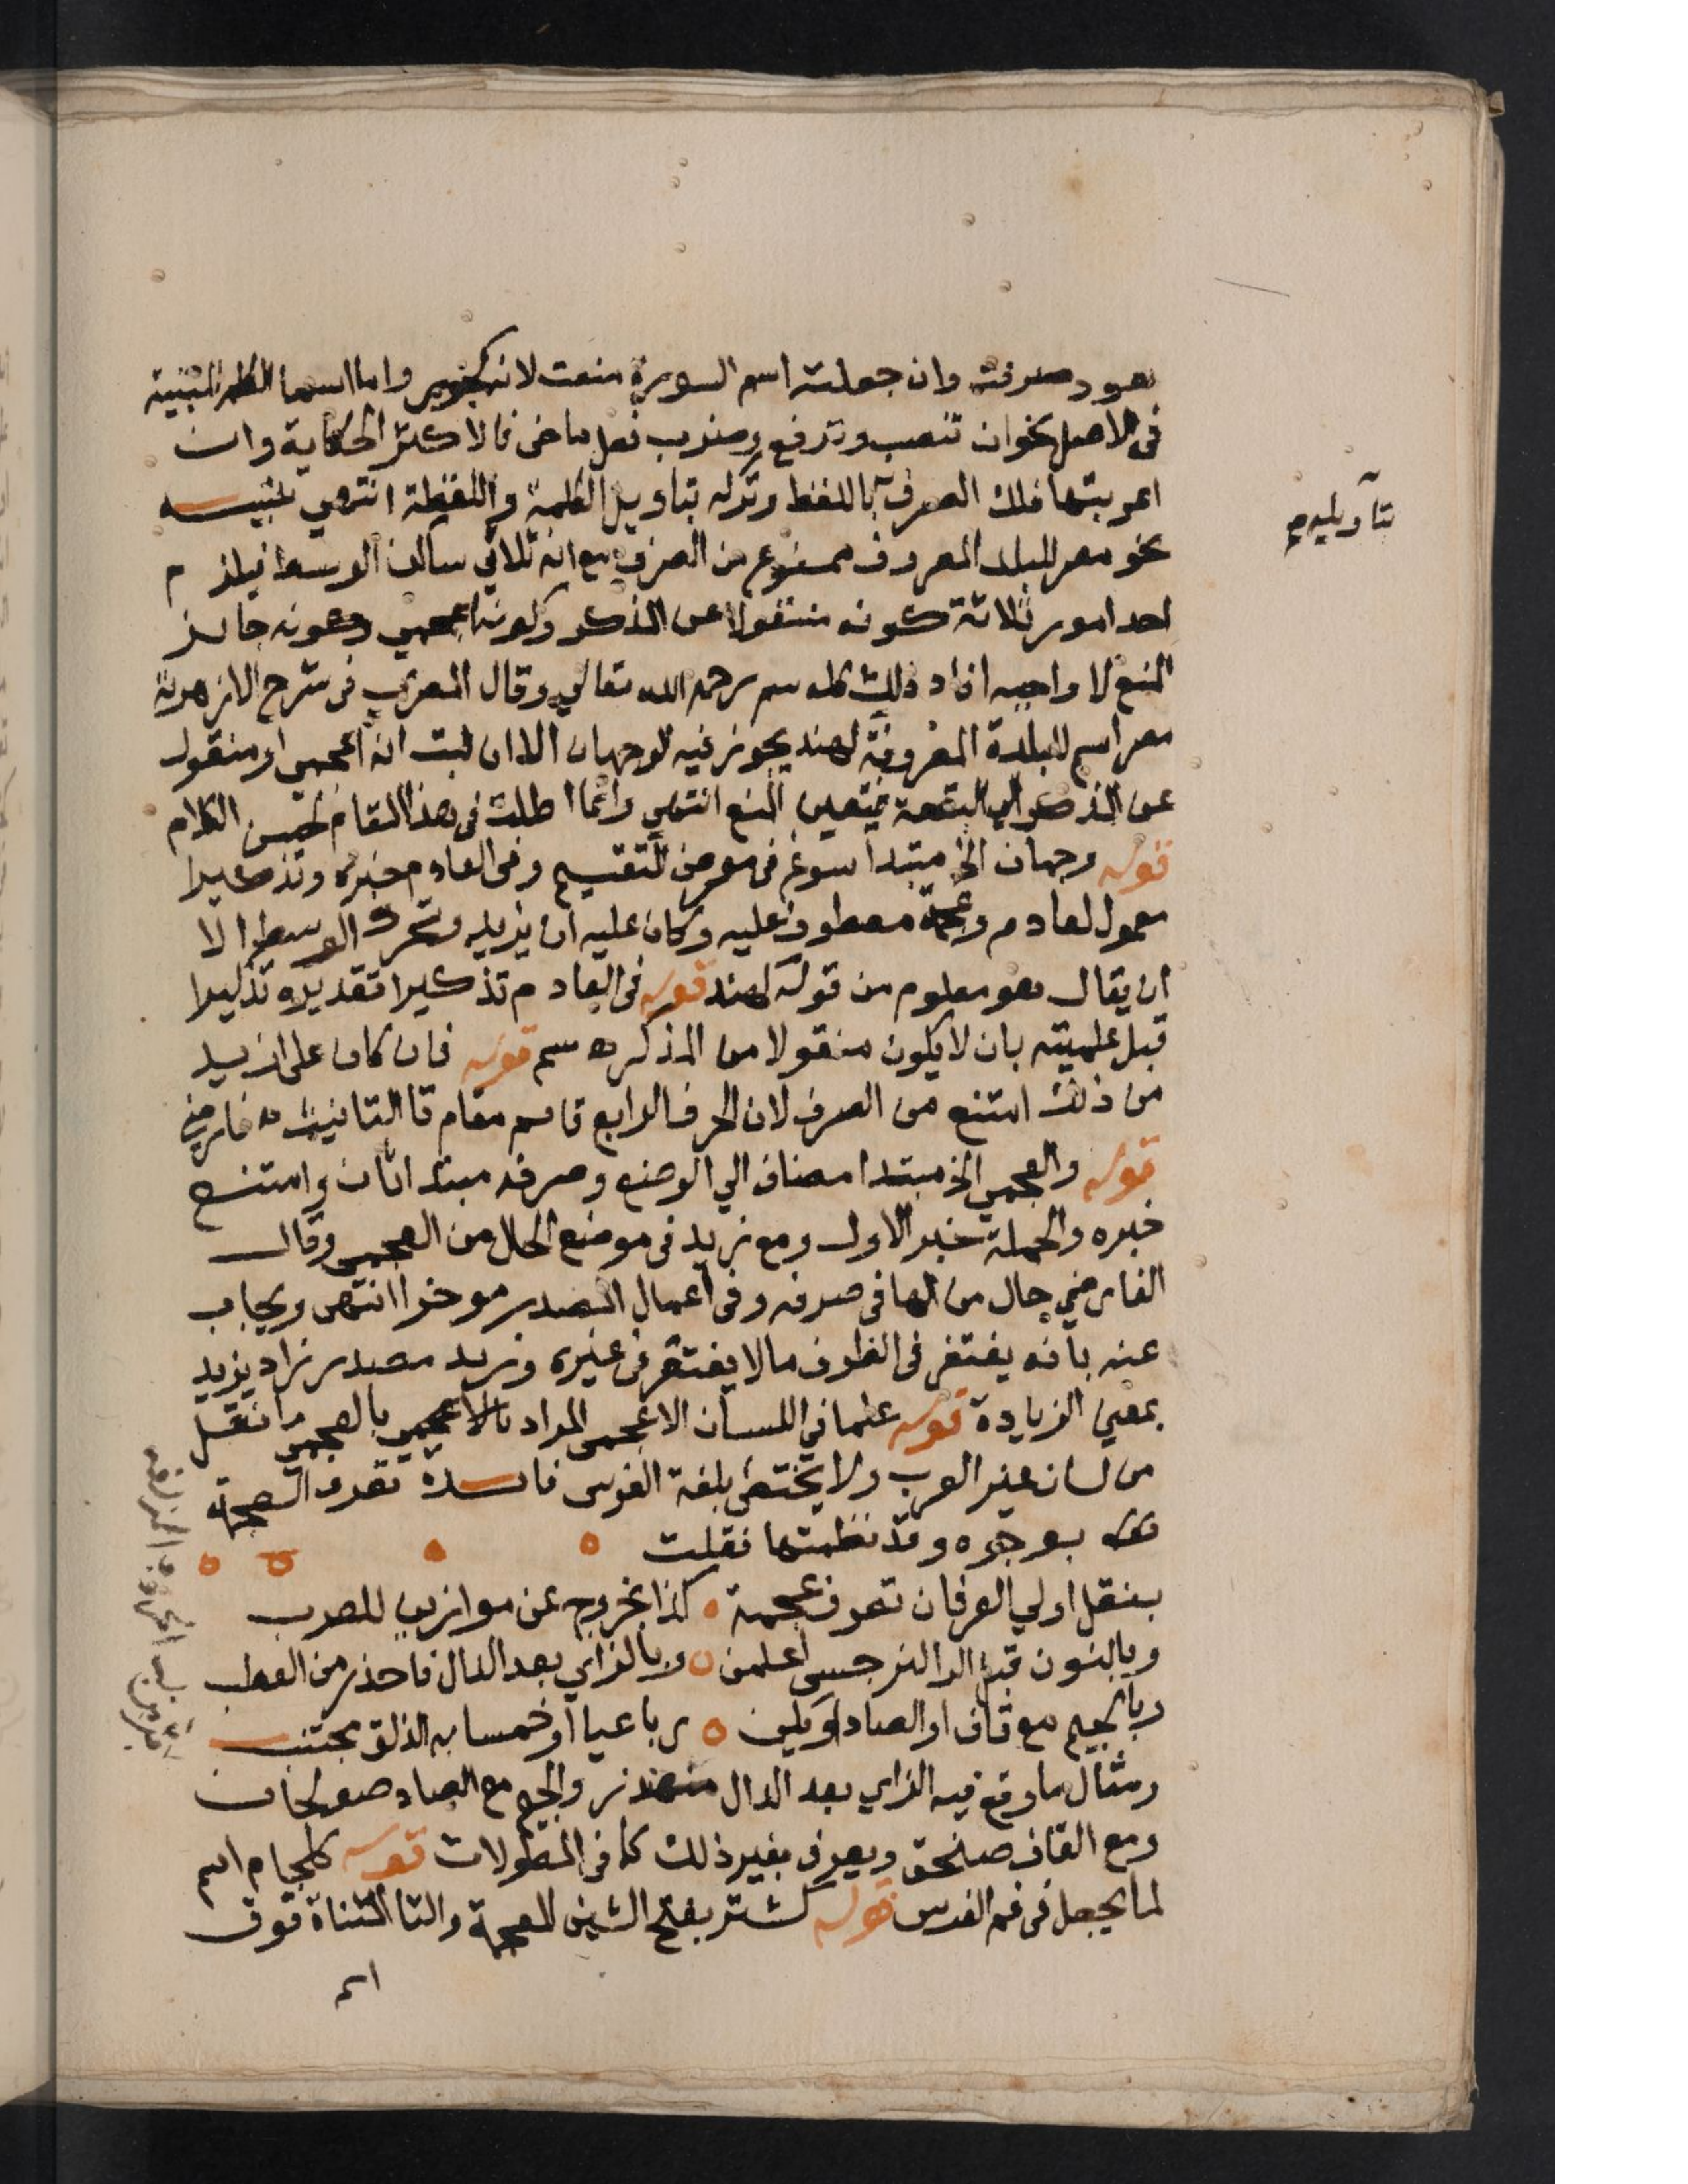 هود صرفته وان جعلته اسم السورة منعت لانه كجور واما اسما الكلم المبنية
فى الاصل نحو ان تنصب وترفع وضرب فعل ماض فالاكثر الحكاية وان
اعربتها فلك الصرف باللفظ وتركه بتاويل الكلمة واللفظة انتهي تنبيه
نحو مصر للبلد المعروف ممنوع من الصرف مع انه ثلاثي ساكن الوسط فيلزم
احد امور ثلاثة كونه منقولا عن المذكر وكونه اعجمي وكونه جايز
المنع لا واجبه افاد ذلك كله سم رحمه الله تعالي وقال المعرب فى شرح الازهرية
مصر اسم للبلدة المعروفة كهند يجوز فيه الوجهان الا ان ثبت انه اعجمي او منقول
عن المذكر الي البقعة فيتعين المنع انتهي وانما اطلت فى هذا المقام لحسن الكلام
قوله وجهان الخ مبتدا سوغ فى معرض التقسيم وفى العادم خبره وتذكيرا
معمول لعادم وعجمة معطوف عليه وكان عليه ان يزيد وتحرك الوسط الا
ان يقال هو معلوم من قوله كهند قوله فى العادم تذكيرا تقديره تذكيرا
قبل علميته بان لا يكون منقولا من المذكر ه سم قوله فان كان على ازيد
من ذلك امتنع من الصرف لان الحرف الرابع قايم مقام تا التانيث ه فارضي
قوله والعجمي الخ مبتدا مضاف الي الوضع وصرفه مبتدا ثان وامتنع
خبره والجملة خبر الاول ومع زيد فى موضع الحال من العجمي وقال
الفارضي حال من الها فى صرفه وفى اعمال المصدر موخرا انتهى ويجاب
عنه بانه يغتفر فى الظرف ما لا يغتفر فى غيره وزيد مصدر زاد يزيد
بمعني الزيادة قوله علما في اللسان الاعجمى المراد بالاعجمي بالعجمي ما نقل
من لسان غير العرب ولا يختص بلغة الفرس فايدة تعرف العجمة
بوجوه وقد نظمتها فقلت
بنقل اولي العرفان تعرف عجمة كذا بخروج عن موازين للعرب
وبالنون قبل الرا كنرجس اعلمن وبالزاي بعد الدال فاحذر من العطب
وبالجيم مع قاف او الصاد او يكن رباعيا او خمسا به الذلق يجتنب
ومثال ما وقع فيه الزاي بعد الدال مهندز والجيم مع الصاد صولجان
ومع القاف صنجق ويعرف بغير ذلك كما فى المطولات قوله كلجام اسم
لما يجعل فى فم الفرس قوله كشتر بفتح الشين المعجمة والتا المثناة فوق
اسم
بتاويله صح